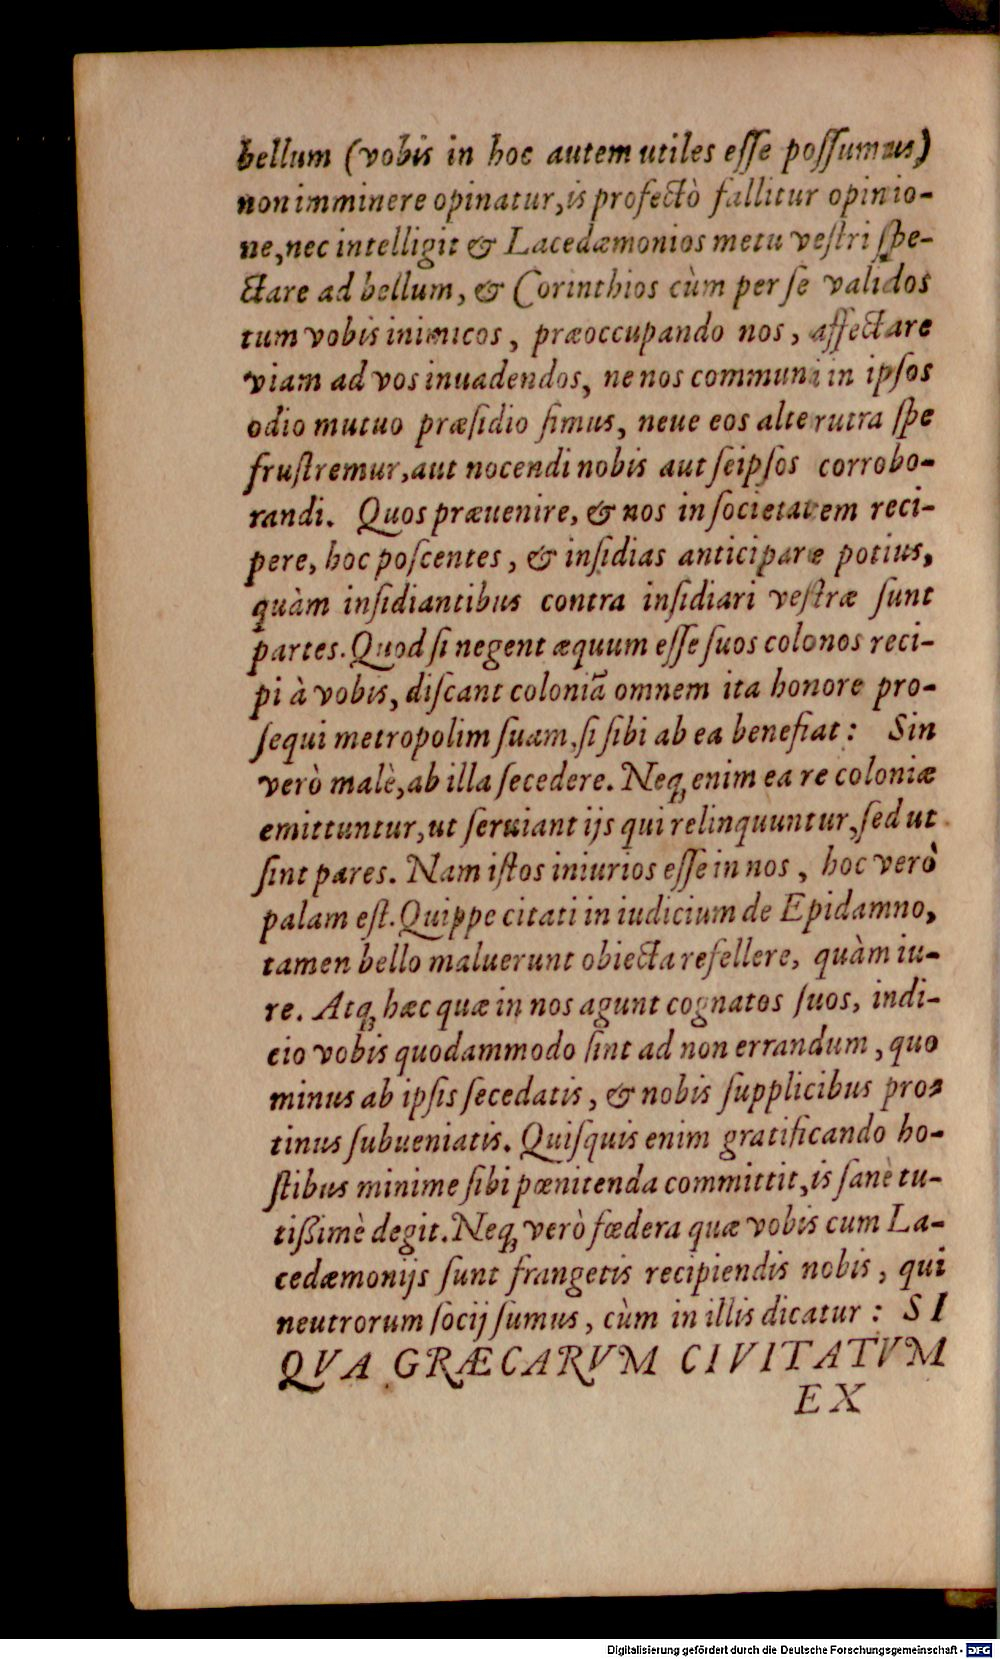 bellum (vobis in hoc autem utiles eſſe poſſumus)
non imminere opinatur, is profectò fallitur opinio-
ne, nec intelligit & Lacedæmonios metu veſtri ſpe-
ctare ad bellum, & Corinthios cùm per ſe validos
tum vobis inimicos, præoccupando nos, affectare
viam ad vos inuadendos, ne nos communi in ipſos
odio mutuo præſidio ſimus, neue eos alterutra ſpe
fruſtremur, aut nocendi nobis aut ſeipſos corrobo-
randi. Quos præuenire, & nos in ſocietatem reci-
pere, hoc poſcentes, & inſidias anticipare potius,
quàm inſidiantibus contra inſidiari veſtræ ſunt
partes. Quod ſi negent æquum eſſe ſuos colonos reci-
pi à vobis, diſcant coloniã omnem ita honore pro-
ſequi metropolim ſuam, ſi ſibi ab ea benefiat: Sin
verò malè, ab illa ſecedere. Neq; enim ea re coloniæ
emittuntur, ut ſeruiant ijs qui relinquuntur, ſed ut
ſint pares. Nam iſtos iniurios eſſe in nos, hoc verò
palam eſt. Quippe citati in iudicium de Epidamno,
tamen bello maluerunt obiecta refellere, quàm iu-
re. Atq; hæc quæ in nos agunt cognatos ſuos, indi-
cio vobis quodammodo ſint ad non errandum, quo
minus ab ipſis ſecedatis, & nobis ſupplicibus pro-
tinus ſubueniatis. Quiſquis enim gratificando ho-
ſtibus minime ſibi pœnitenda committit, is ſanè tu-
tißimè degit. Neq; verò fœdera quæ vobis cum La-
cedæmonijs ſunt frangetis recipiendis nobis, qui
neutrorum ſocij ſumus, cùm in illis dicatur: SI
QVA GRÆCARVM CIVITATVM
EX
Digitalisierung gefördert durch die Deutsche Forschungsgemeinschaft - DFG